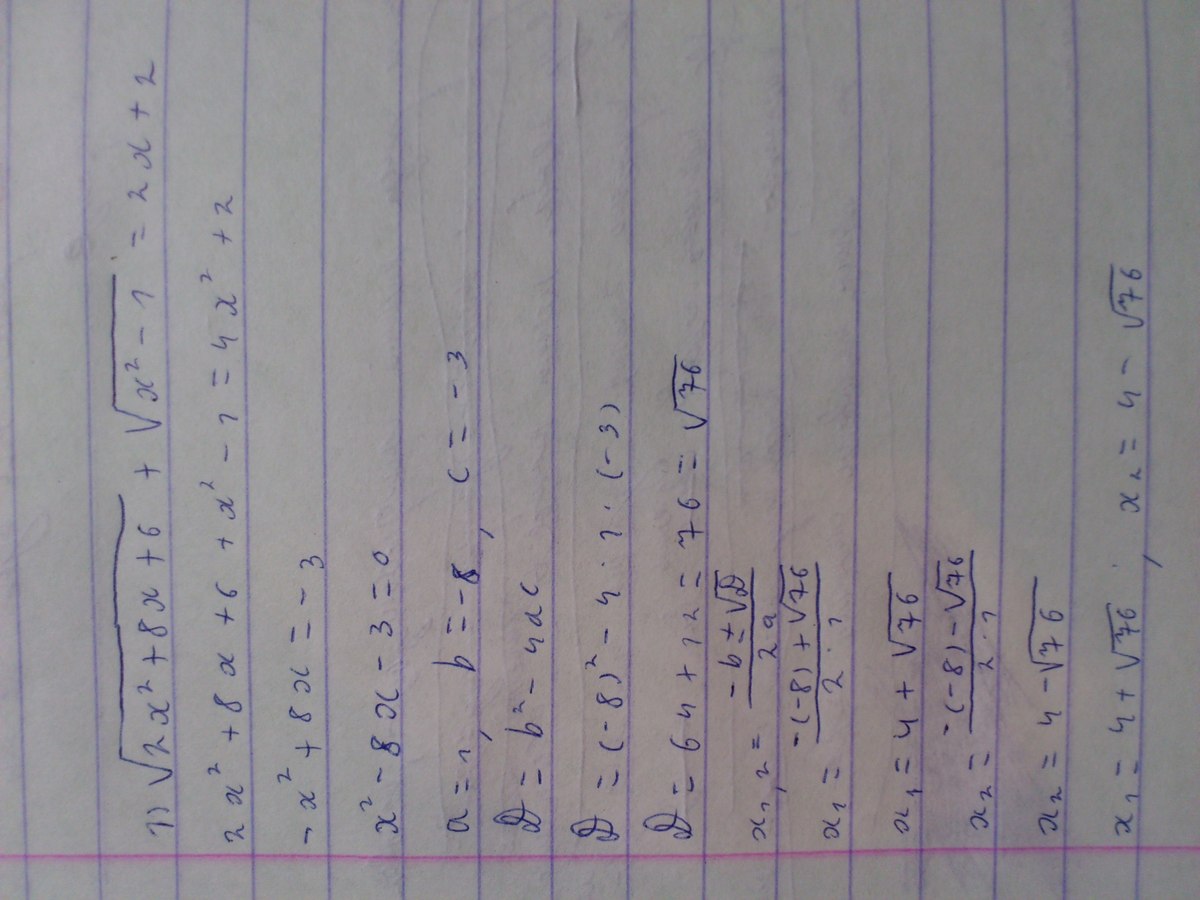 1) √(2x² + 8x + 6) + √(x² - 1) = 2x + 2
2x² + 8x + 6 + x² - 1 = 4x² + 2
-x² + 8x = -3
x² - 8x - 3 = 0
a = 1, b = -8, c = -3
D = b² - 4ac
D = (-8)² - 4 · 1 · (-3)
D = 64 + 12 = 76 = √76
x₁,₂ = (-b ± √D) / 2a
x₁ = (-(-8) + √76) / (2 · 1)
x₁ = 4 + √76
x₂ = (-(-8) - √76) / (2 · 1)
x₂ = 4 - √76
x₁ = 4 + √76, x₂ = 4 - √76